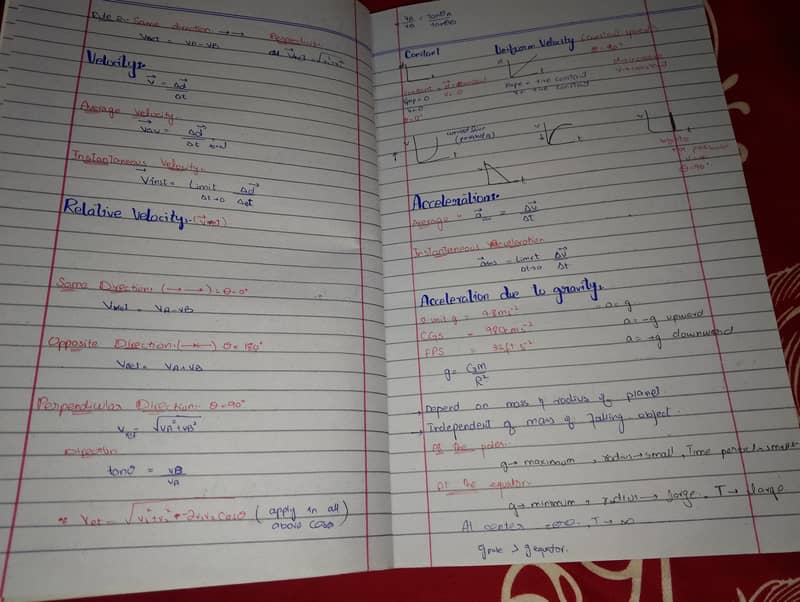 Rule 2:- Same direction → →
Perpendicular
Vret = VA - VB
Velocity:-
V = Δd
Δt
Average Velocity:-
Vav = Δd
Δt
Instantaneous Velocity:-
Vinst = Limit Δd
Δt→0 Δt
Relative Velocity:-
Same Direction: (→ →) : θ=0°
Vret = VA - VB
Opposite Direction: θ=180°
Vret = VA + VB
Perpendicular Direction: θ=90°
= √VA²+VB²
Direction
tanθ = VB
VA
= √V1²+V2²-2V1V2 Cosθ (apply in all
above case)
VA = tanθA
VB
Constant
Uniform Velocity (constant speed)
θ=90°
t
t
Slope = +ive constant
+ive constant
Gap = 0
V=0
θ=0°
(parabola)
t
t
t
V
θ=90°
Acceleration:-
Average = a = Δv
Δt
Instantaneous Acceleration
= Limit Δv
Δt→0 Δt
Acceleration due to gravity:-
g = 9.8ms⁻²
a=g
CGS = 980cms⁻²
a=-g upward
FPS = 32ft s⁻²
a=+g downward
g = GM
R²
→ Depend on mass & radius of planet.
→ Independent of mass of falling object.
At the poles.
g→ maximum, radius→small, Time period→small
At the equator.
g→ minimum, radius→ large, T→ large
At center zero, T→∞
gpole > gequator.